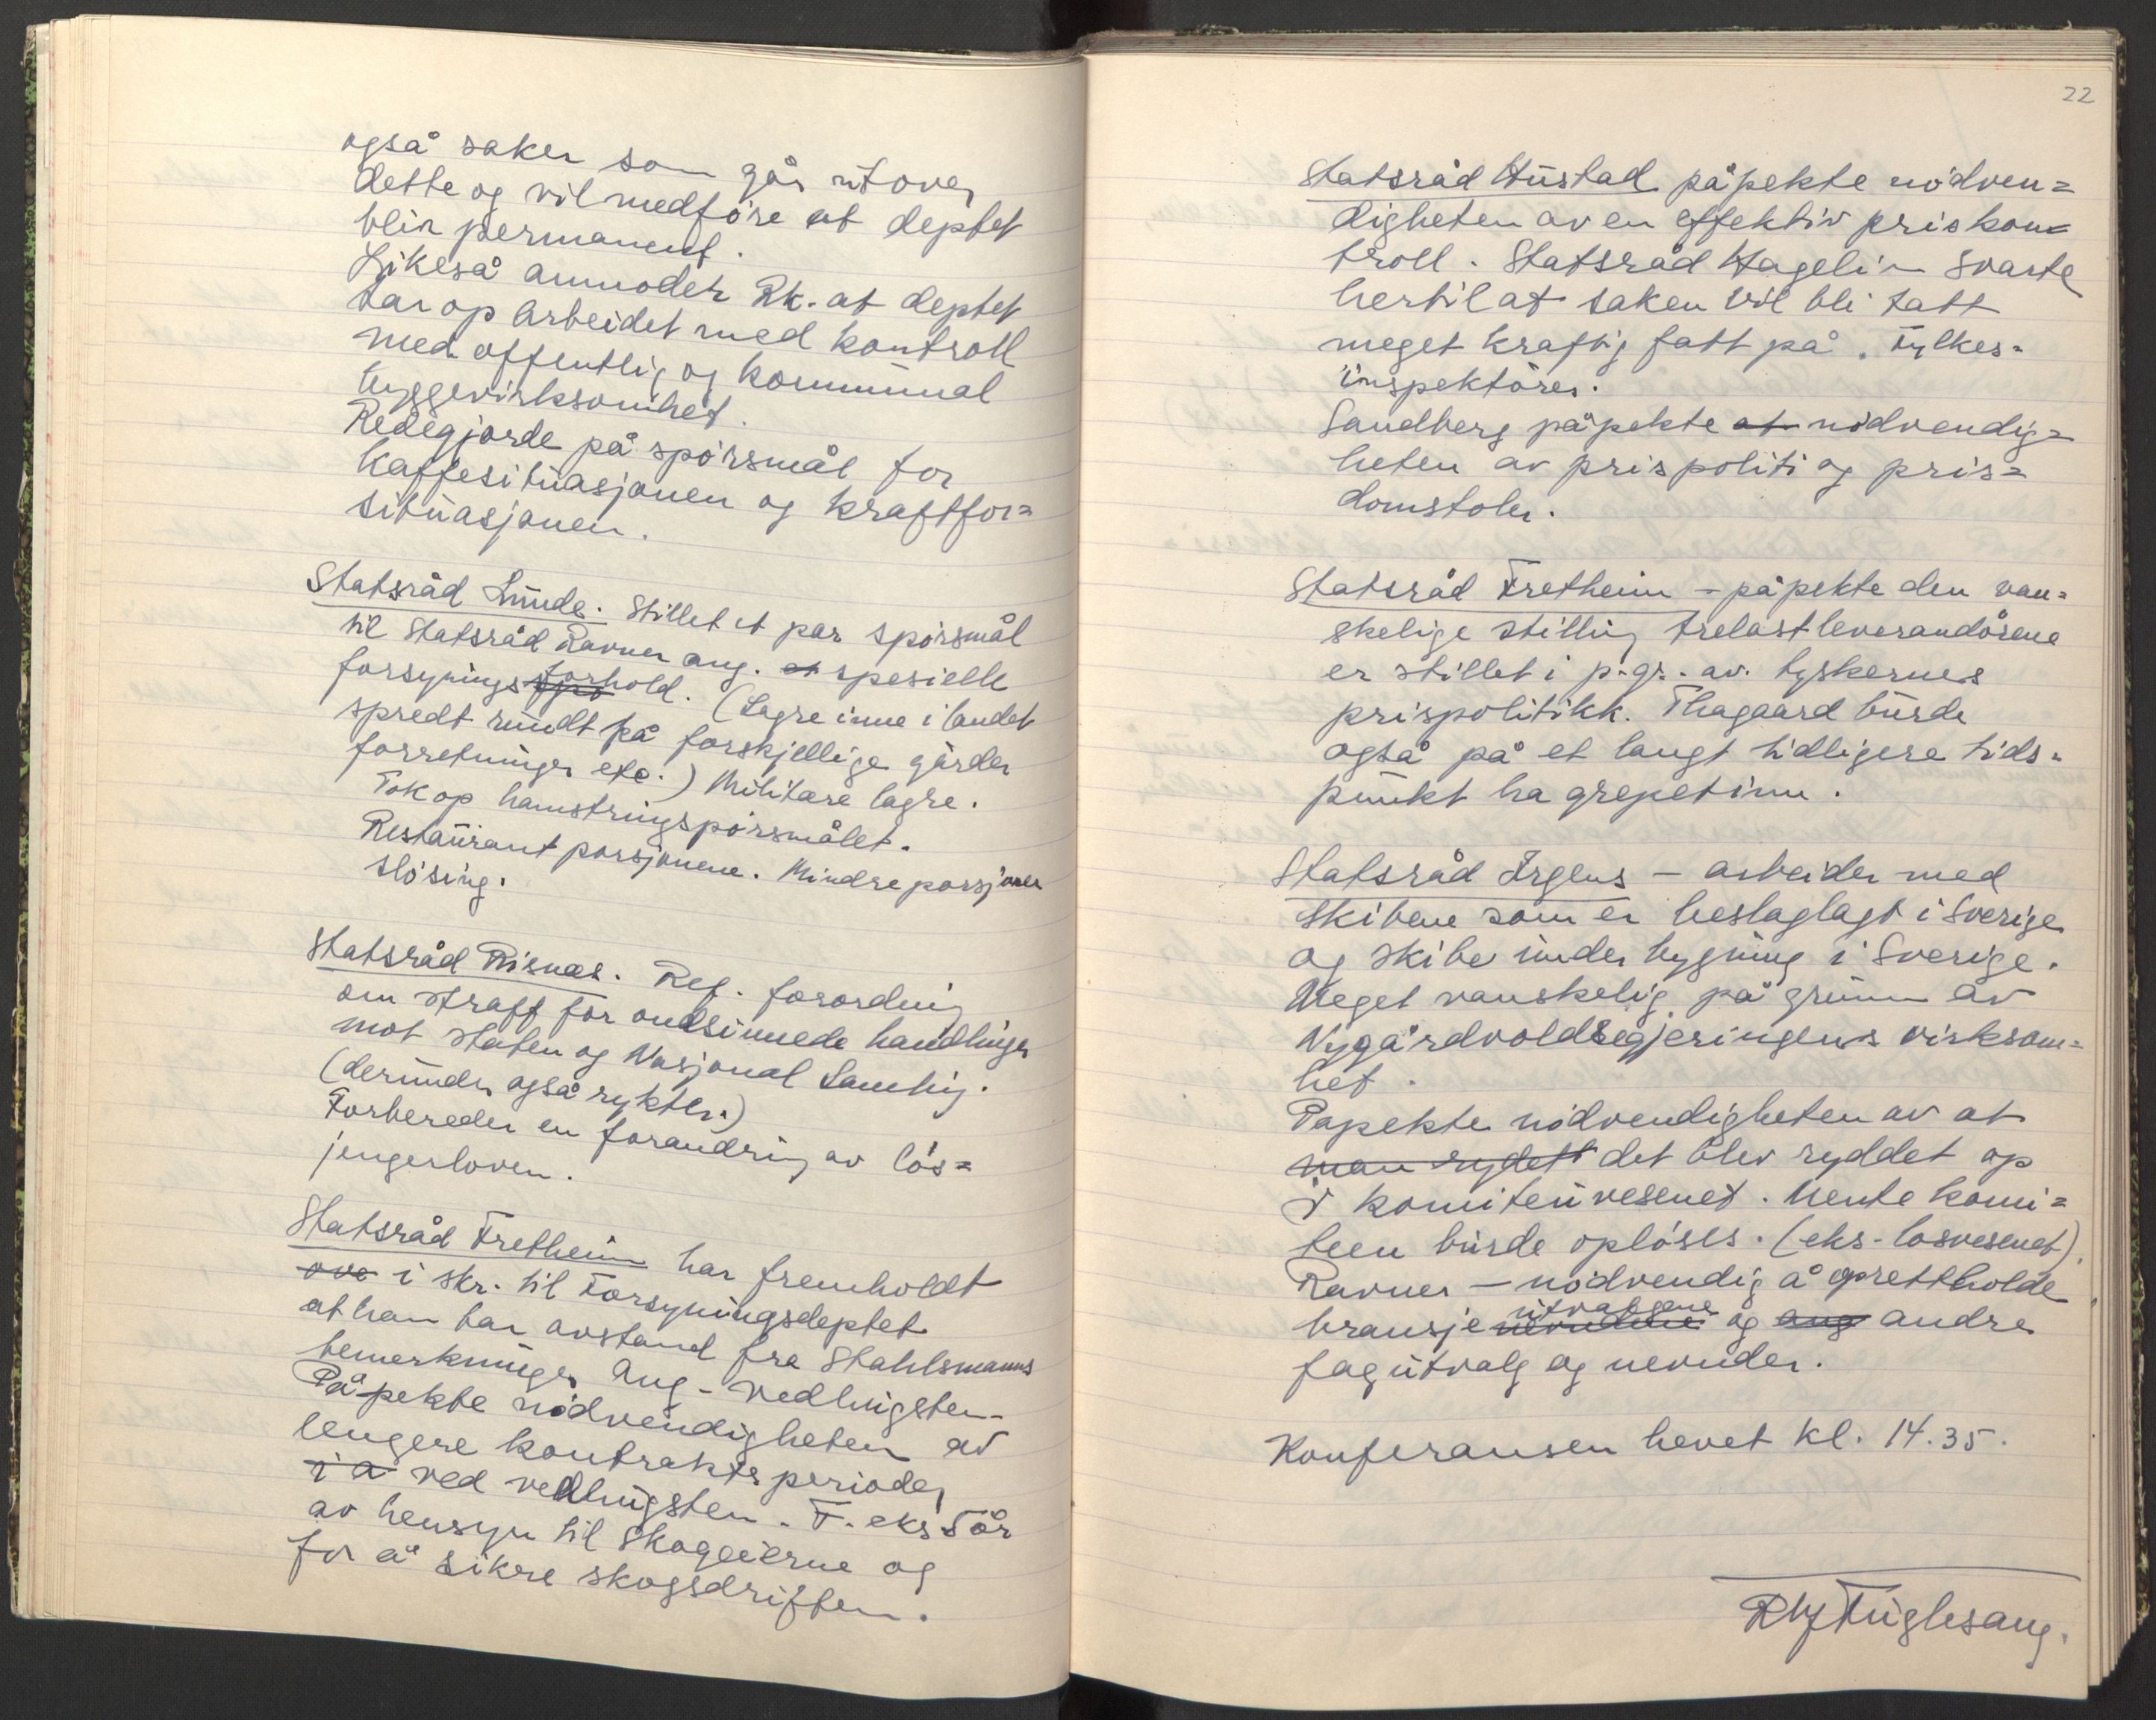 også saker som går utover
dette og vil medføre at deptet
blir permanent.
Likeså anmodet Rk. at deptet
tar op arbeidet med kontroll
med offentlig og kommunal
byggevirksomhet.
Redegjorde på spørsmål for
kaffesituasjonen og kraftfor=
situasjonen.
Statsråd Lunde. Stillet et par spørsmål
til Statsråd Ravner ang. et spesielle
forsyningsforhold. (Lagre inne i landet
spredt rundt på forskjellige gårder
forretninger etc.) Militære lagre.
Tok op hamstringspørsmålet.
Restaurant porsjonene. Mindre porsjoner
sløsing.
Statsråd Risnæs. Ref. forordning
om straff for ondsinnede handlinger
mot staten og Nasjonal Samling.
(derunder også rykter.)
Forbereder en forandring av løs=
jengerloven.
Statsråd Fretheim har fremholdt
ove i skr. til Forsyningsdeptet
at han tar avstand fra Stahlsmanns
bemerkninger ang. vedhugsten.
Påpekte nødvendigheten av
lengere kontraktsperioder
i a ved vedhugsten. F. eks 5 år
av hensyn til skogeierne og
for å sikre skogsdriften.
22
Statsråd Hustad påpekte nødven=
digheten av en effektiv priskon=
troll. Statsråd Hagelin svarte
hertil at saken vil bli tatt
meget kraftig fatt på. Fylkes=
inspektører.
Sandberg påpekte at nødvendig=
heten av prispoliti og pris=
domstoler.
Statsråd Fretheim - påpekte den van=
skelige stilling trelastleverandørene
er stillet i p.gr. av. tyskernes
prispolitikk. Thagaard burde
også på et langt tidligere tids=
punkt ha grepet inn.
Statsråd Irgens - arbeider med
skibene som er beslaglagt i Sverige
og skibe under bygning i Sverige.
Meget vanskelig på grunn av
Nygårdvoldsregjeringens virksom=
het.
Papekte nødvendigheten av at
man rydett det blev ryddet op
i komiteuvesenet. Mente komi=
teen burde opløses. (eks. losvesenet).
Ravner - nødvendig å oprettholde
utvalgene
bransje nevndene og ang andre
fagutvalg og nevnder.
Konferansen hevet kl. 14.35.
R Fuglesang.